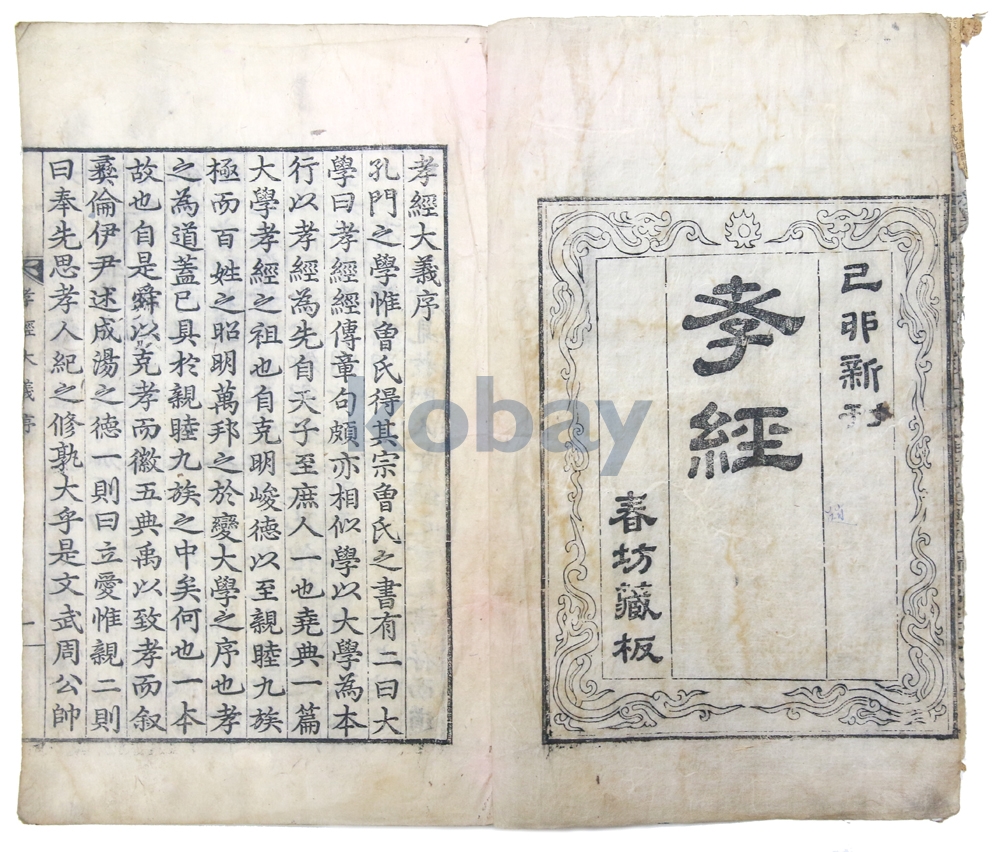 己卯新刊
孝經
春坊藏板
孝經大義序
孔門之學惟曾氏得其宗曾氏之書有二曰大
學曰孝經經傳章句頗亦相似學以大學為本
行以孝經為先自天子至庶人一也堯典一篇
大學孝經之祖也自克明峻德以至親睦九族
極而百姓之昭明萬邦之於變大學之序也孝
之為道蓋已具於親睦九族之中矣何也一本
故也自是舜以克孝而徽五典禹以致孝而叙
彝倫伊尹述成湯之德一則曰立愛惟親二則
曰奉先思孝人紀之修孰大乎是文武周公帥
孝經大義序
一
kobay